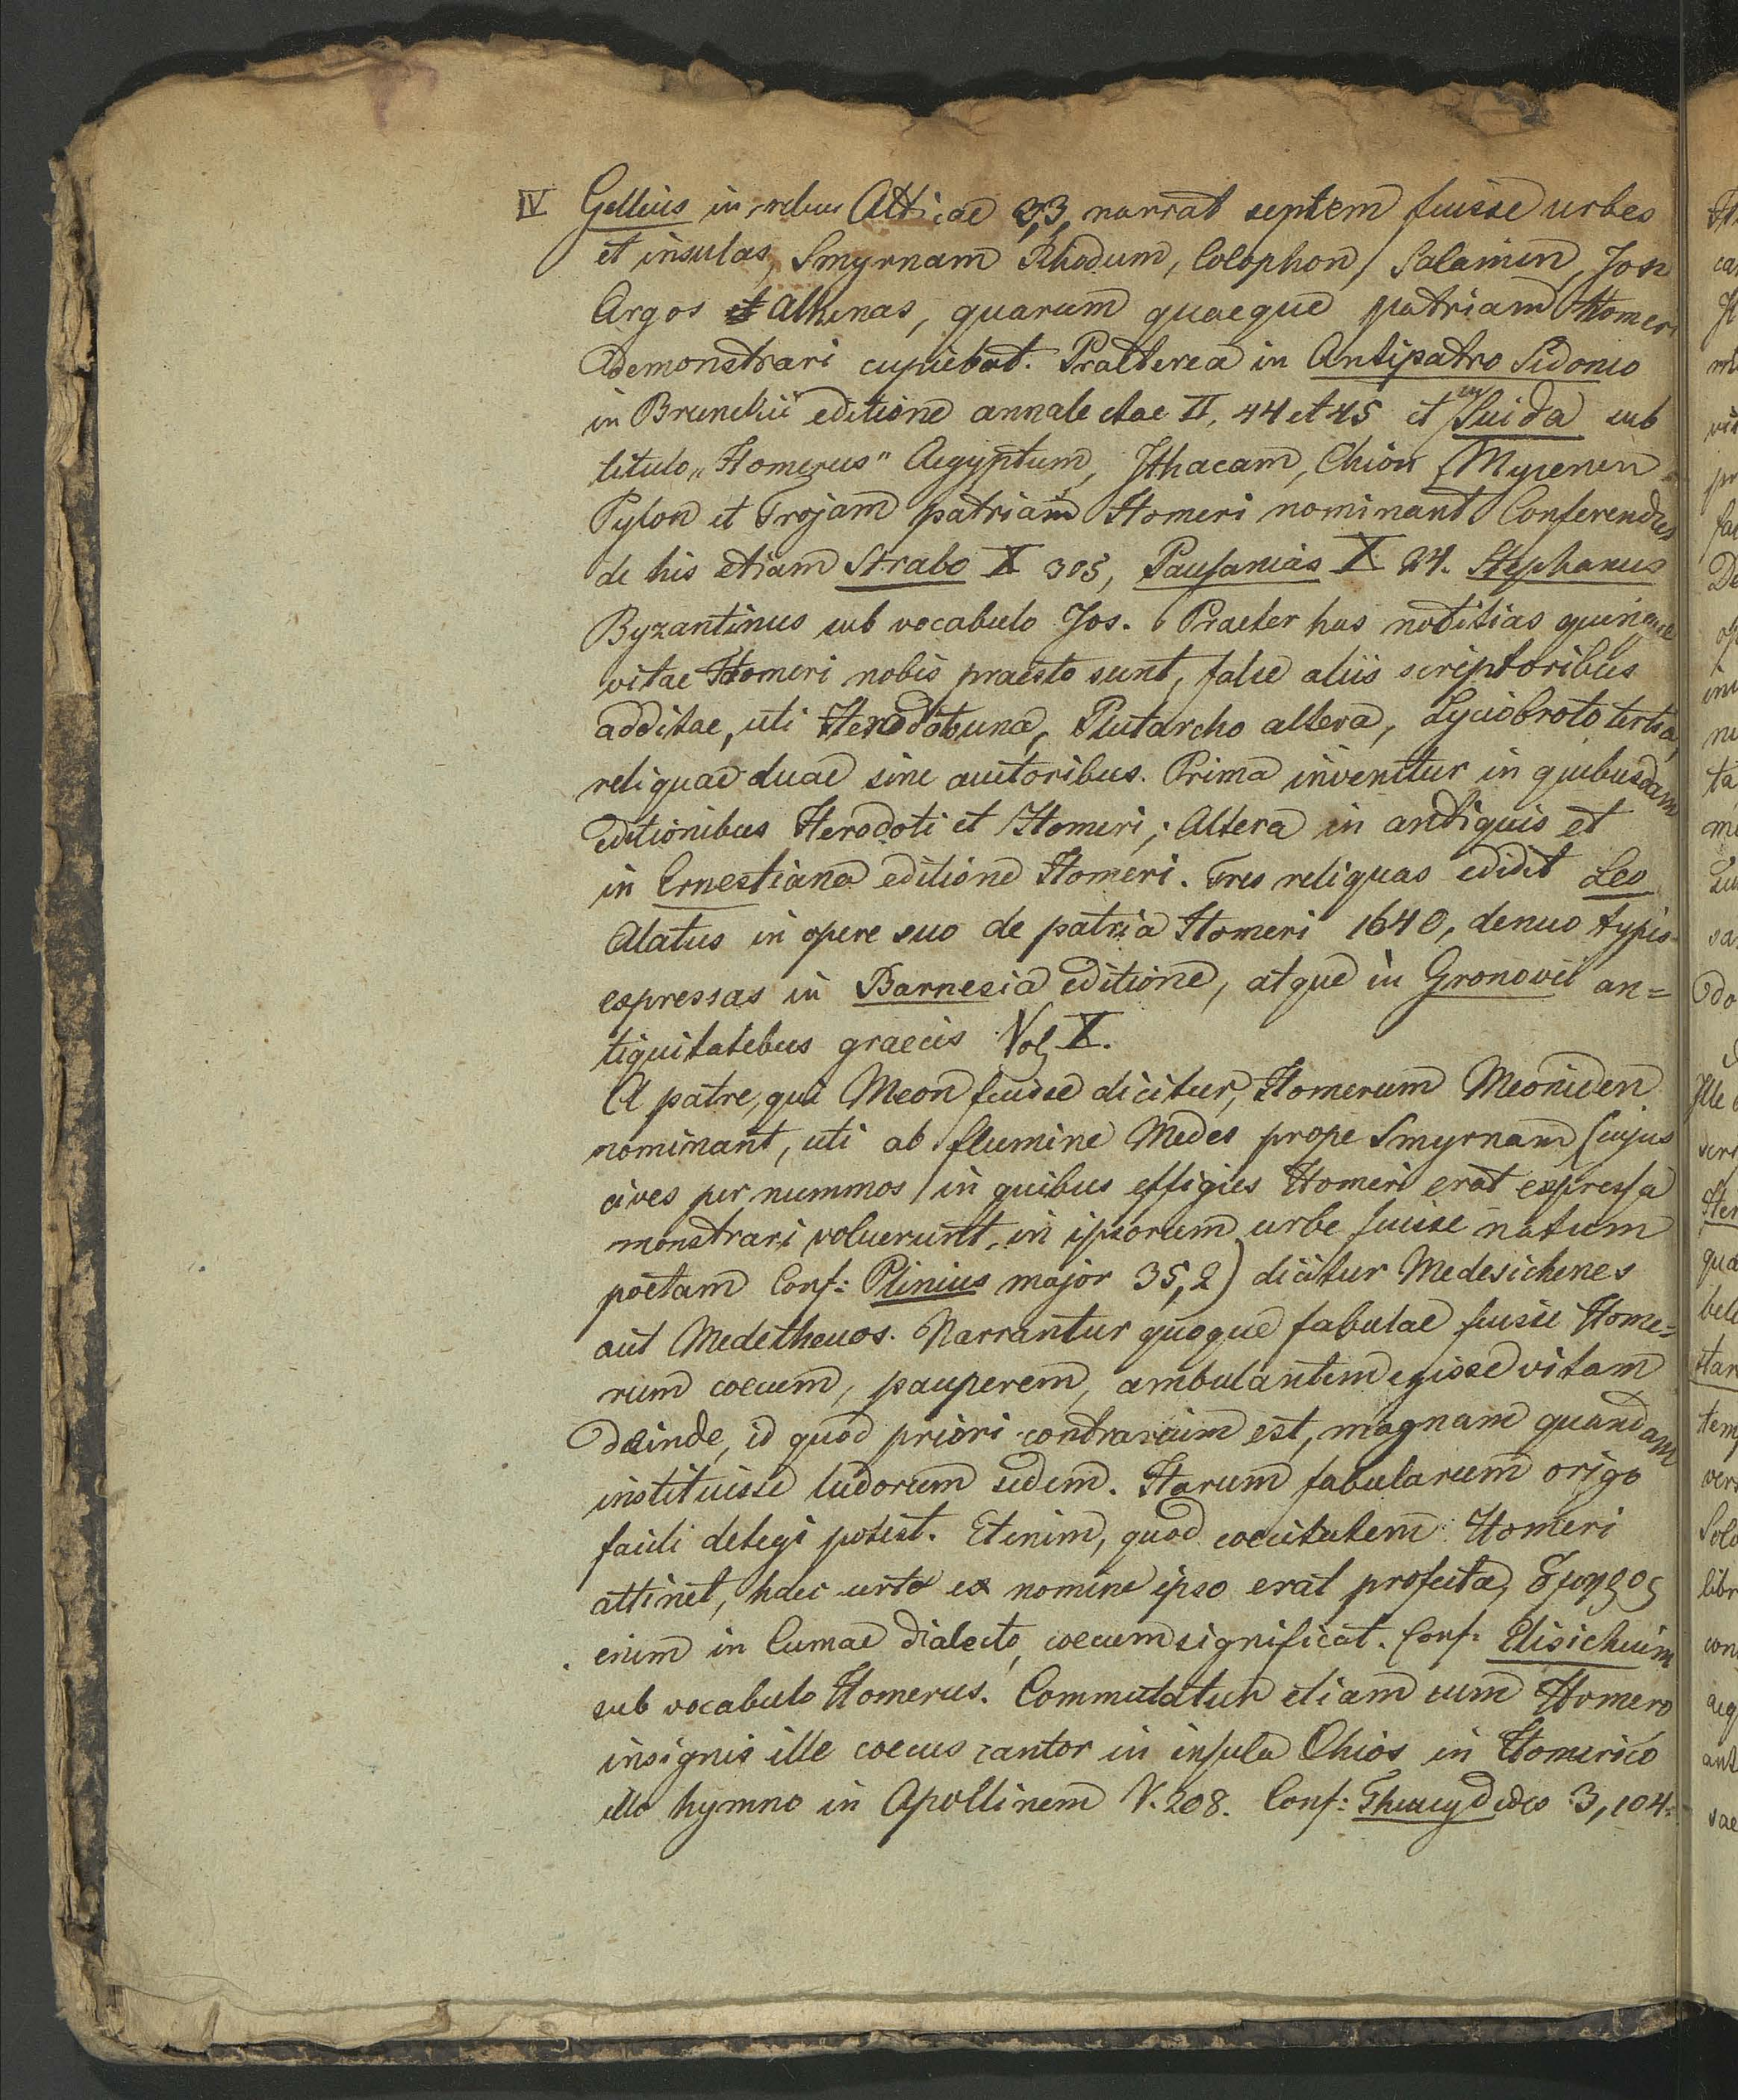 IV Gellius in rebus Atticae 3,3, narrat septem fuisse urbes
et insulas, Smyrnam Rhodum, Colophon, Salamin, Jos
Argos et Athenas, quarum quaeque patriam Homeri
demonstrari cupiebat. Praeterea in Antipatro Sidonio
in Brunckii editione annalectae II, 44 et 45 et in Suida sub
titulo „Homerus" Aegyptum, Ithacam, Chion, Mycenen
Pylon et Trojam patriam Homeri nominant Conferendus
de his etiam Strabo X 305, Pausanias X 24. Stephanus
Byzantinus sub vocabulo Jos. Praeter has notitias quinque
vitae Homeri nobis praesto sunt, false aliis scriptoribus
additae, uti Herodoto una, Plutarcho altera, Lyciobroto tertia,
reliquae duae sine autoribus. Prima invenitur in quibusdam
editionibus Herodoti et Homeri; Altera in antiquis et
in Ernestiana editione Homeri. Tres reliquas edidit Leo
Alatus in opere suo de patria Homeri 1640, denuo typis
expressas in Barnesia editione, atque in Gronovii an=
tiquitatibus graecis Vol X.
A patre, qui Meon fuisse dicitur, Homerum Meoniden
nominant, uti ab flumine Medes prope Smyrnam (cujus
cives per nummos in quibus effigies Homeri erat expressa
monstrari voluerunt, in ipsorum urbe fuisse natum
poëtam Conf: Plinius major 35,2) dicitur Medesichenes
aut Medetheuos. Narrantur quoque fabulae fuisse Home=
rum coecum, pauperem, ambulantem egisse vitam
deinde, id quod priori contrarium est, magnam quandam
instituisse ludorum sedem. Harum fabularum origo
facili detegi potest. Etenim, quod coecitatem Homeri
attinet, haec certe ex nomine ipso erat profecta, ὅμηρος
enim in Cumae dialecto, coecum significat. Conf: Elisichium
sub vocabulo Homerus. Commutatur etiam cum Homero
insignis ille coecus cantor in insula Chios in Homerico
illo hymno in Apollinem V. 208. Conf: Thucydides 3, 104.